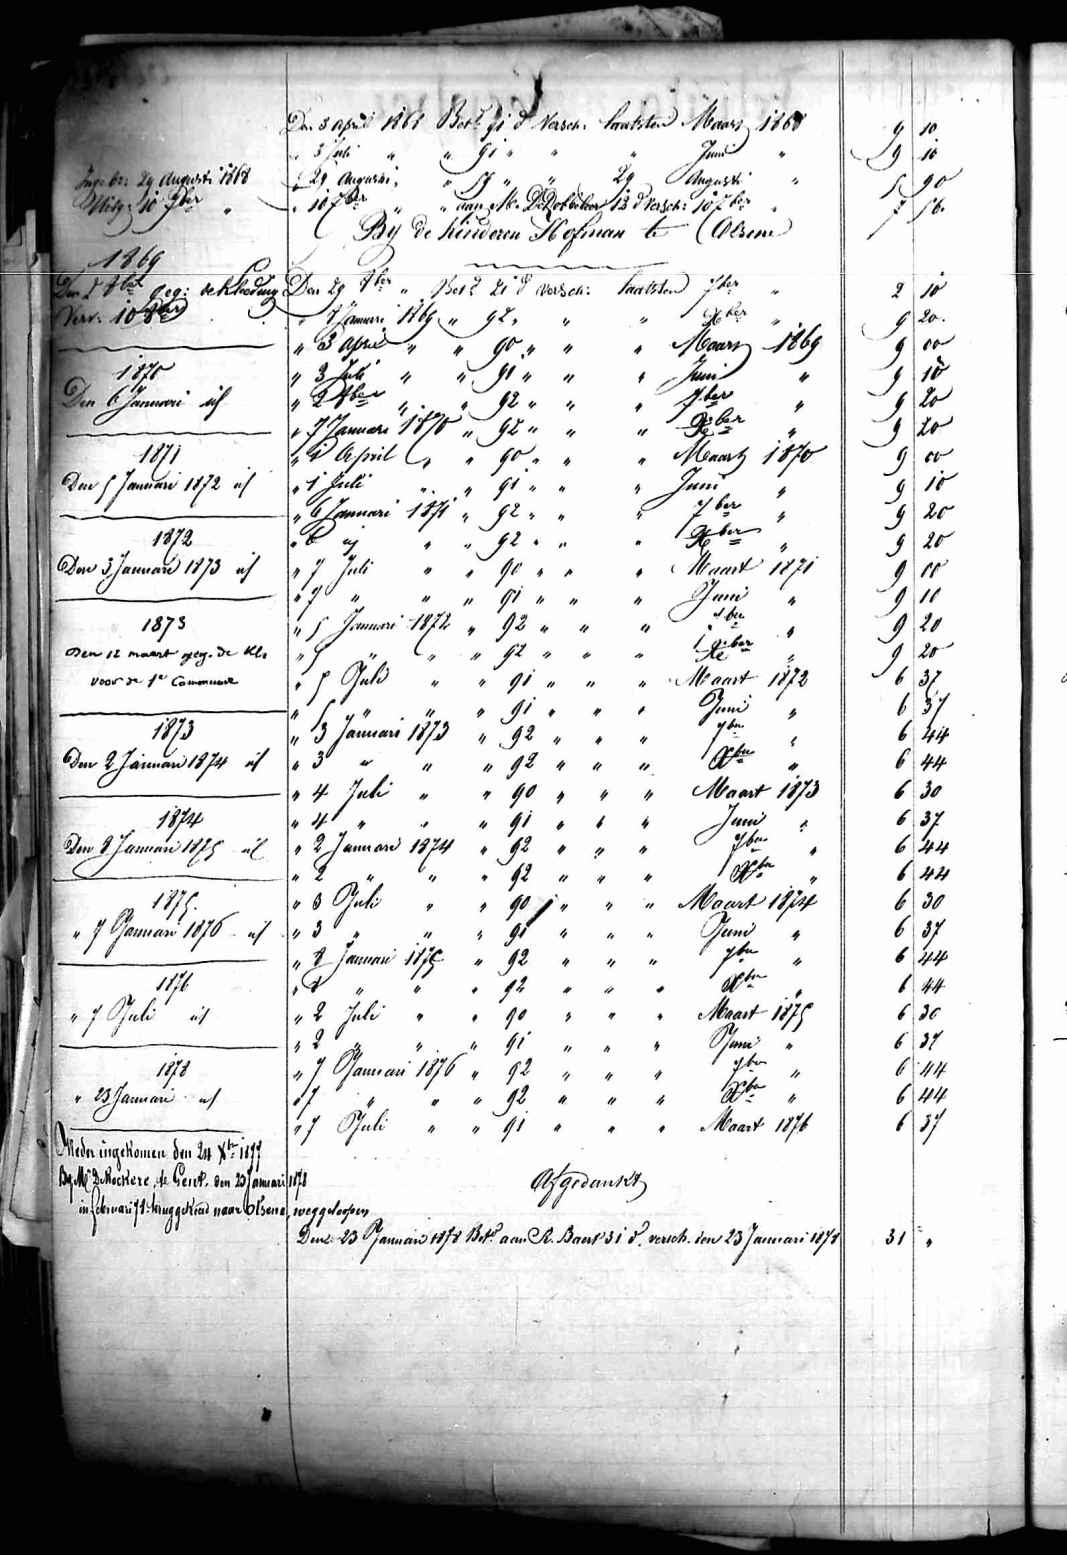 Den 3 April 1868 Bet.d 91 d. Versch: laatsten Maart 1868 9 10
" 3 Juli " " 91 " " " Juni " 9 10
Ingeb: 29 Augusti 1868 " 29 Augusti " " 59 " " 29 Augusti " 5 90
Uitg: 10 7ber " " 10 7ber " " aan Mr. 12 d Versch: 10 7ber "
By de kinderen Hofman te Olsene
1869
Den 2 8ber geg: bekleeding Den 29 8ber " Bet.d 21 d versch: laatsten 7ber " 2 10
Verv: 10 8ber " 8 Januari 1869 " 92 " " " Xber " 9 20
" 3 April " " 90 " " " Maart 1869 9 00
1870 " 3 Juli " " 91 " " " Juni " 9 10
Den 6 Januari id " 2 8ber " " 92 " " " 7ber " 9 20
" 7 Januari 1870 " 92 " " " Xber " 9 20
1871 " 1 April " " 90 " " " Maart 1870 9 00
Den 5 Januari 1872 id " 1 Juli " " 91 " " " Juni " 9 10
" 6 Januari 1871 " 92 " " " 7ber " 9 20
1872 " 6 id " " 92 " " " Xber " 9 20
Den 3 Januari 1873 id " 7 Juli " " 90 " " " Maart 1871 9 00
" 7 " " " 91 " " " Juni " 9 10
1873 " 5 Januari 1872 " 92 " " " 7ber " 9 20
Den 12 maart geg. de Kl. " 5 " " " 92 " " " Xber " 9 20
voor de 1e Communie " 5 Juli " " 91 " " " Maart 1872 6 37
" 5 " " " 91 " " " Juni " 6 37
1873 " 3 Januari 1873 " 92 " " " 7ber " 6 44
Den 2 Januari 1874 id " 3 " " " 92 " " " Xber " 6 44
" 4 Juli " " 90 " " " Maart 1873 6 30
1874 " 4 " " " 91 " " " Juni " 6 37
Den 8 Januari 1875 id " 2 Januari 1874 " 92 " " " 7ber " 6 44
" 2 " " " 92 " " " Xber " 6 44
1875. " 3 Juli " " 90 " " " Maart 1874 6 30
" 7 Januari 1876 id " 3 " " " 91 " " " Juni " 6 37
" 8 Januari 1875 " 92 " " " 7ber " 6 44
1876 " 8 " " " 92 " " " Xber " 6 44
" 7 Juli id " 2 Juli " " 90 " " " Maart 1875 6 30
" 2 " " " 91 " " " Juni " 6 37
1878 " 7 Januari 1876 " 92 " " " 7ber " 6 44
" 23 Januari id " 7 " " " 92 " " " Xber " 6 44
" 7 Juli " " 91 " " " Maart 1876 6 37
Weder ingekomen den 24 Xbr 1877
By Mr DeKockere, te Gent. den 23 Januari 1878 Afgedankt
in februari 78 teruggekeerd naar Olsene, weggeloopen
Den 23 Januari 1878 Bet.d aan A. Baert 31 d. versch. den 23 Januari 1878 31 "